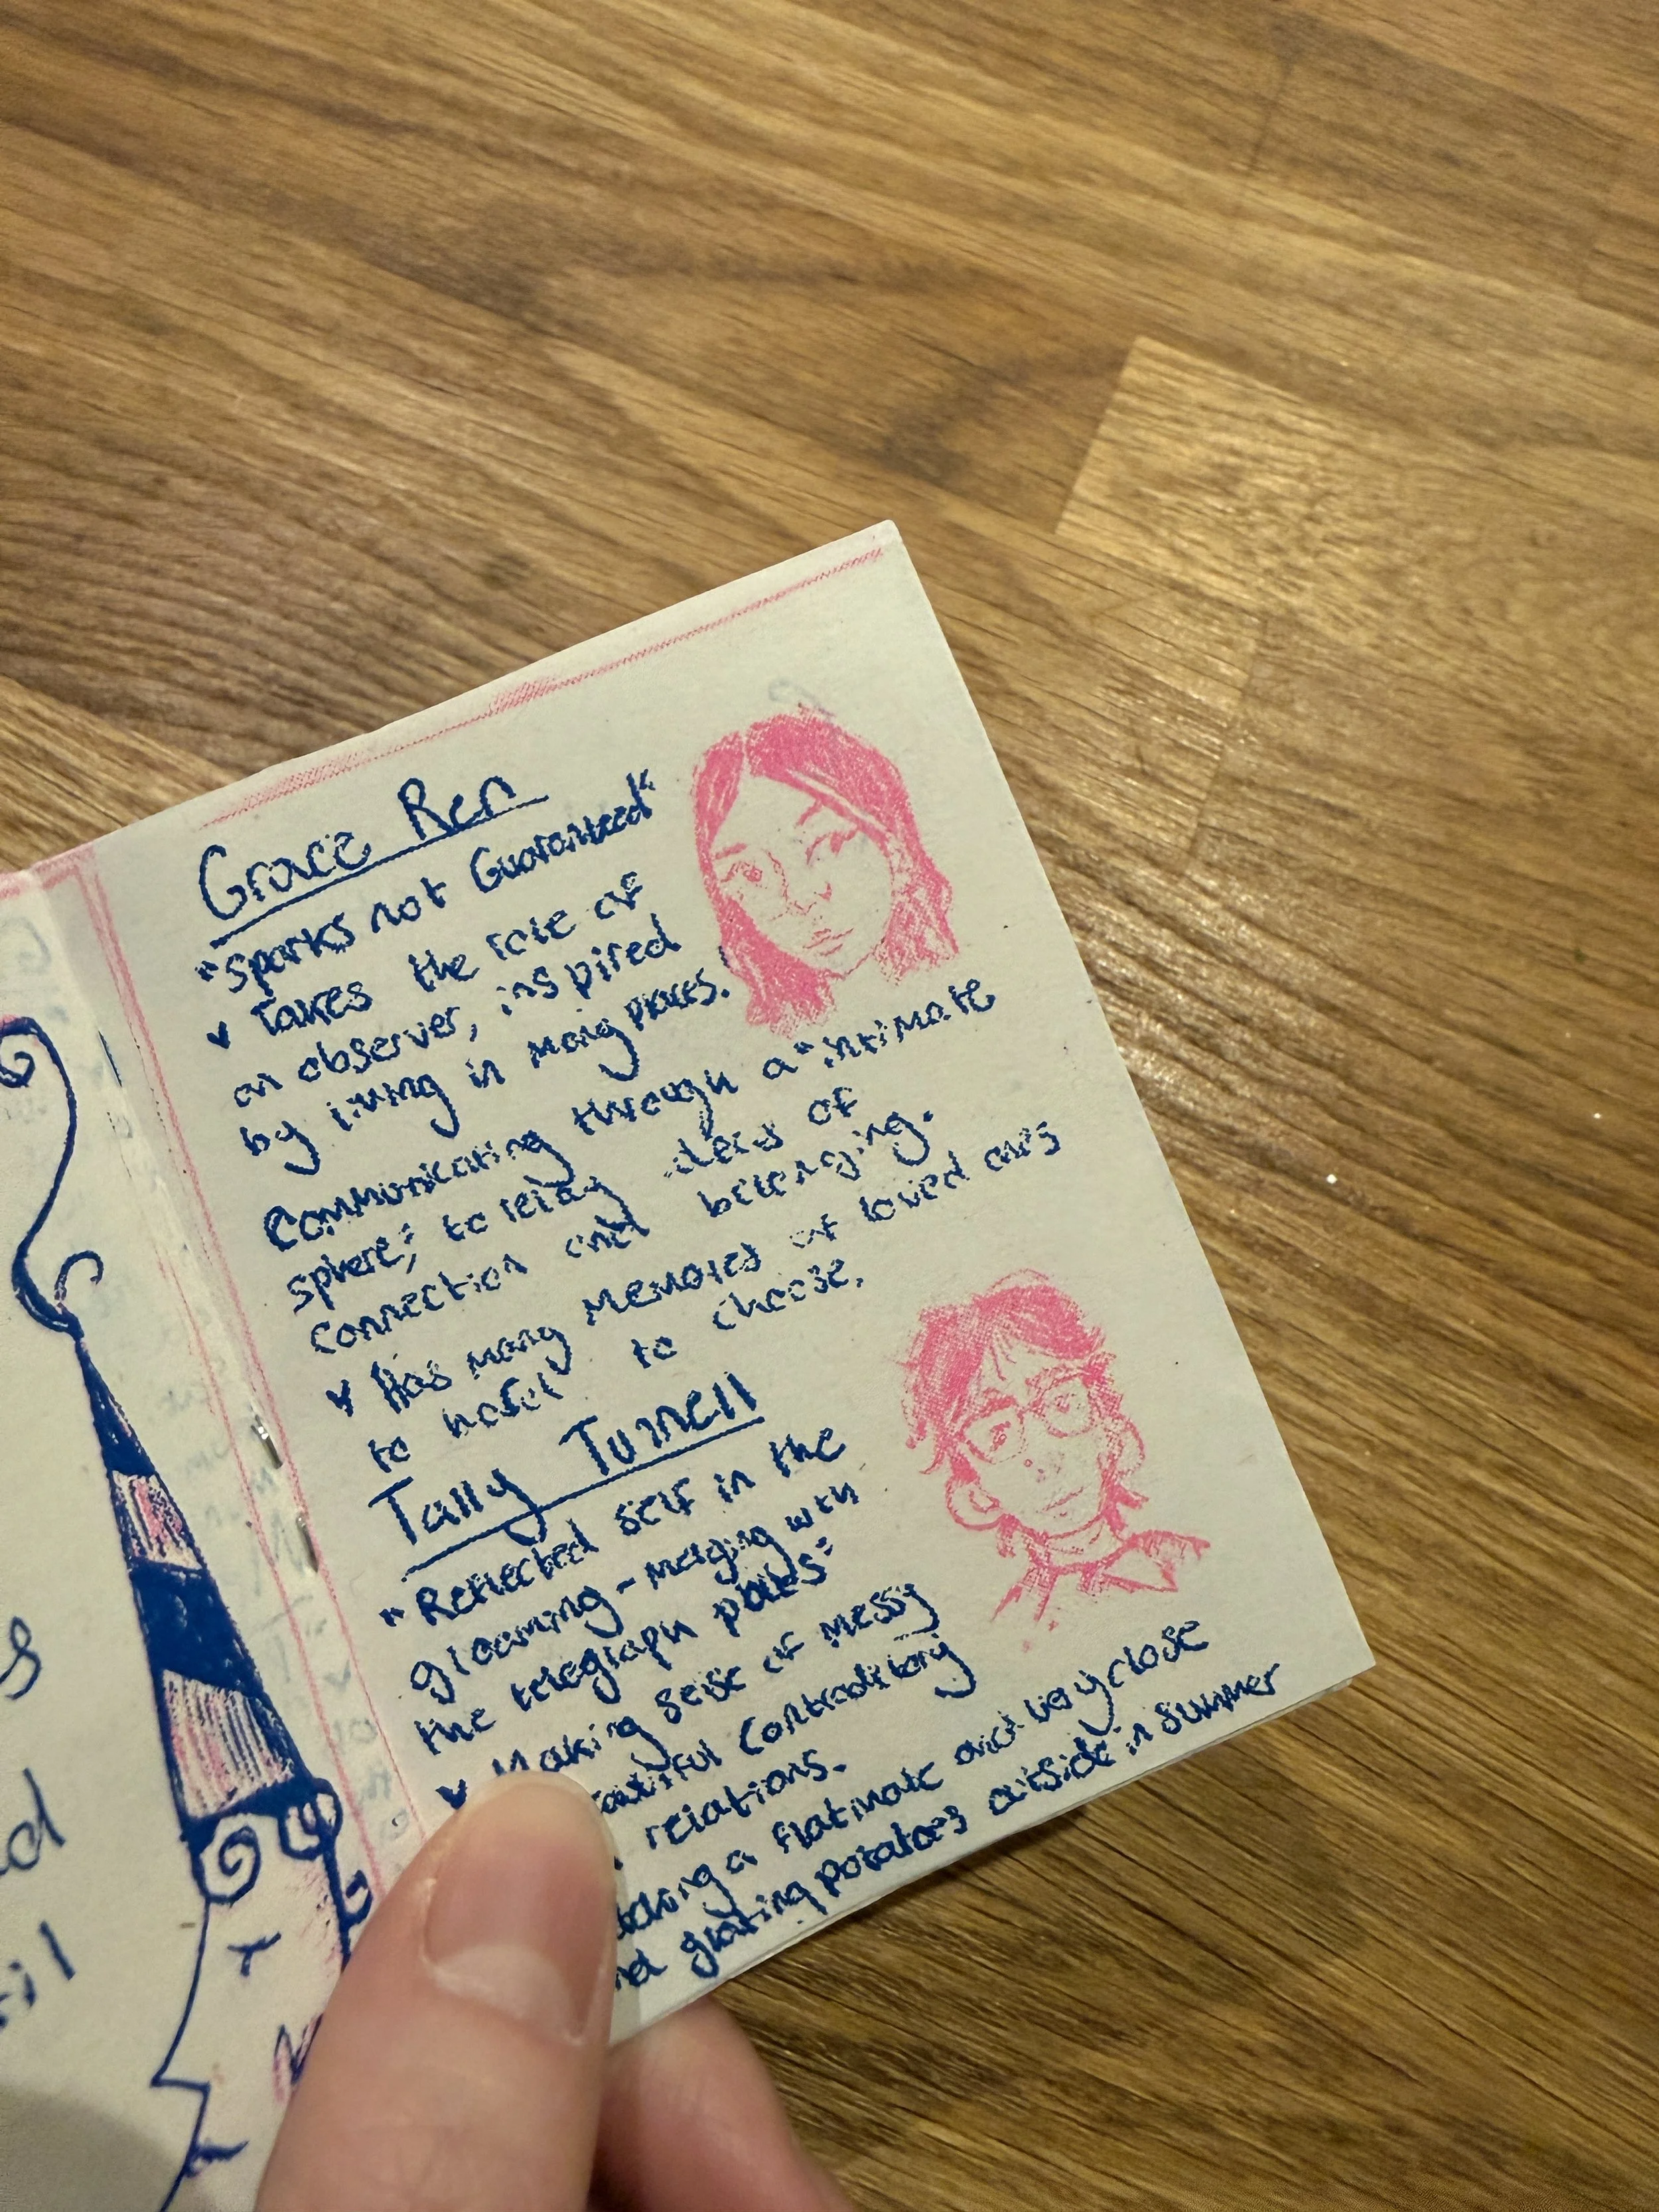 Grace Ren
"Sparks not Guaranteed"
Takes the role of
an observer, inspired
by living in many places.
Communicating through a "intimate
sphere; to relay ideas of
connection and belonging.
Has many memories of loved ones
to hotel to choose.
Tally Tunnell
"Reflected self in the
gloaming - merging with
the telegraph poles"
Making sense of messy
contraditory
relations.
a flatmate and very close
grating potatoes outside in summer